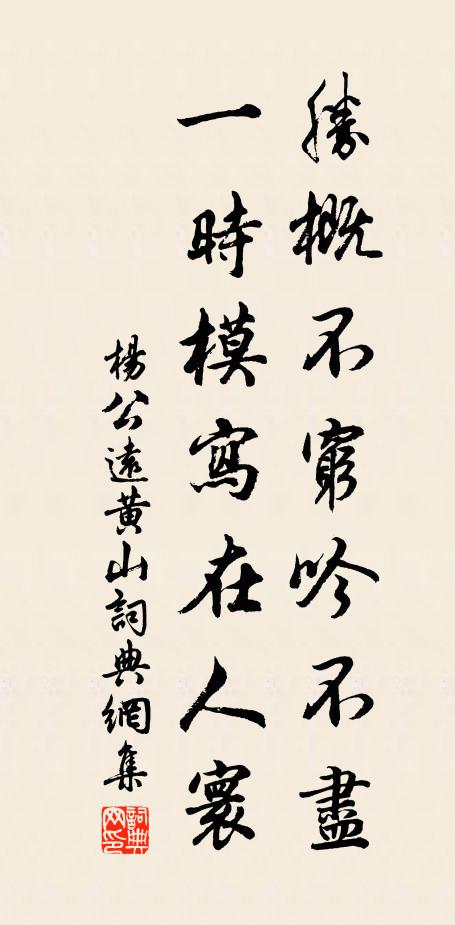 勝概不窮吟不盡
一時模寫在人寰
楊公遠黄山詞典網集
詞典网印